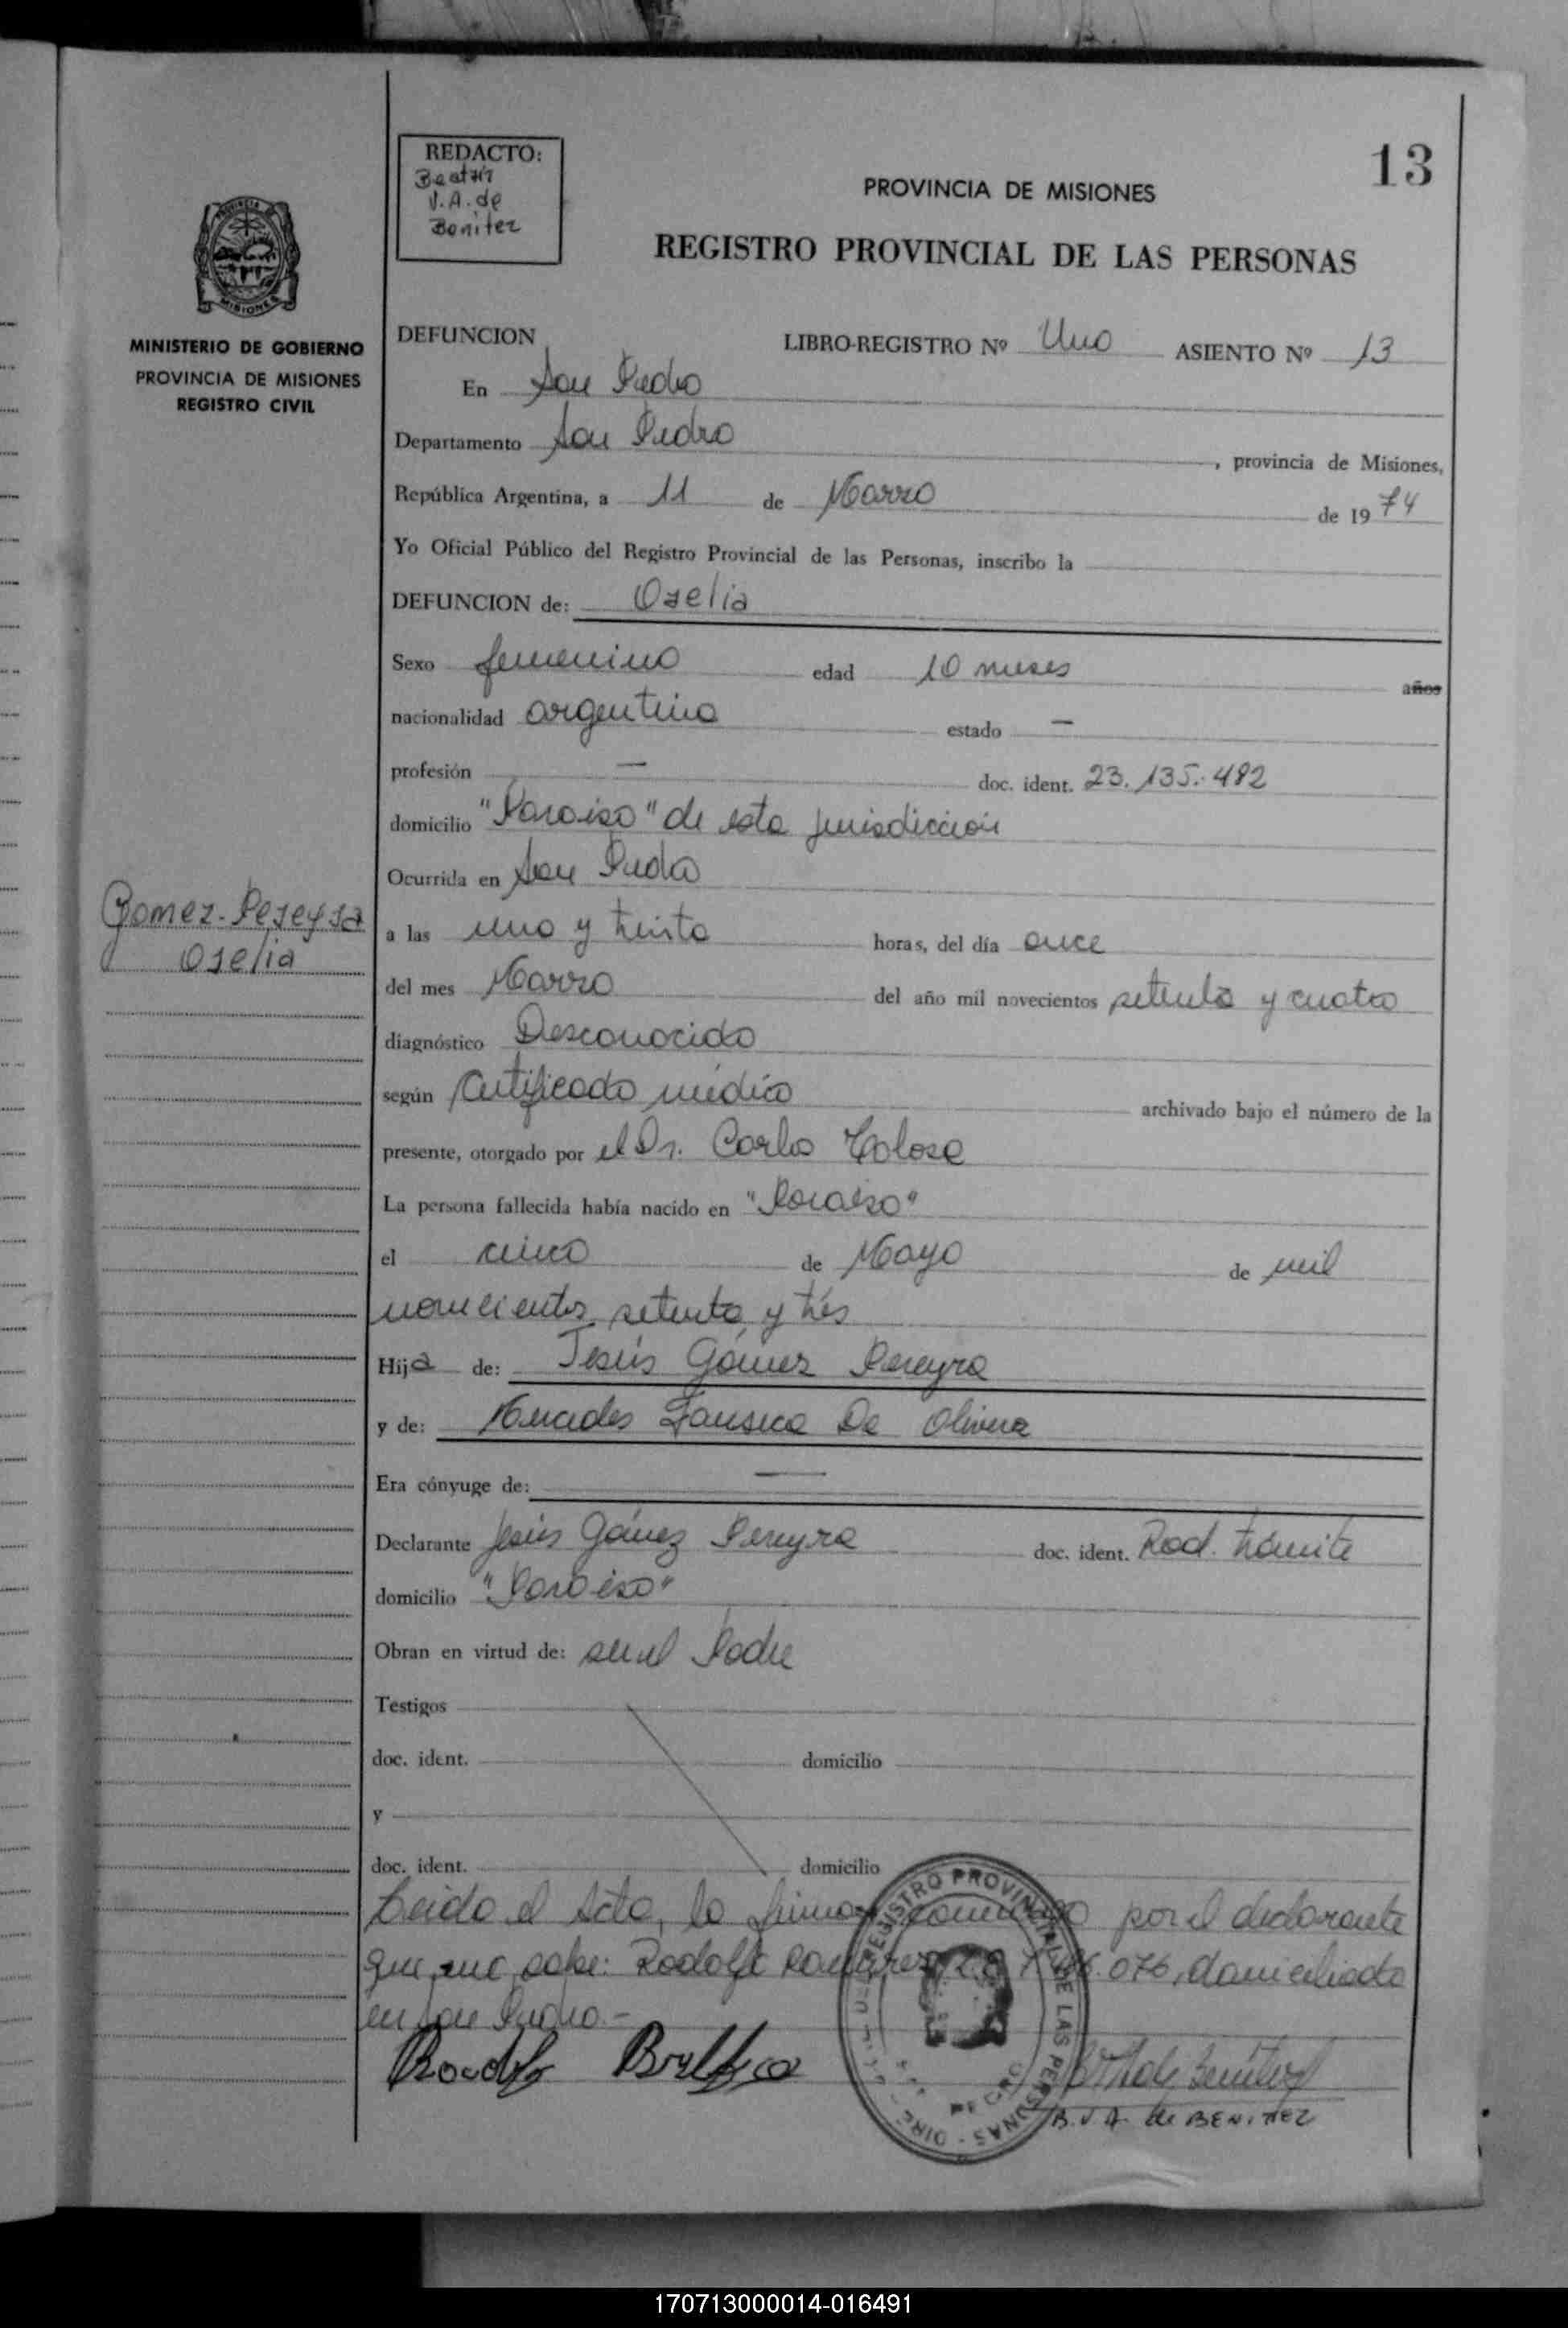 13
REDACTO:
Beatriz
V. A. de
Benitez
PROVINCIA DE MISIONES
REGISTRO PROVINCIAL DE LAS PERSONAS
PROVINCIA DE
MISIONES
MINISTERIO DE GOBIERNO
PROVINCIA DE MISIONES
REGISTRO CIVIL
DEFUNCION LIBRO-REGISTRO Nº Uno ASIENTO Nº 13
En San Pedro
Departamento San Pedro, provincia de Misiones,
República Argentina, a 11 de Marzo de 1974
Yo Oficial Público del Registro Provincial de las Personas, inscribo la
DEFUNCION de: Oselia
Sexo femenino edad 10 meses años
nacionalidad argentina estado —
profesión — doc. ident. 23.135.482
domicilio "Paraiso" de esta jurisdiccion
Ocurrida en San Pedro
Gomez-Pereyra
Oselia
a las una y treinta horas, del día once
del mes Marzo del año mil novecientos setenta y cuatro
diagnóstico Desconocido
según Certificado médico archivado bajo el número de la
presente, otorgado por el Dr. Carlos Tolosa
La persona fallecida había nacido en "Paraiso"
el cinco de Mayo de mil
novecientos setenta y trés
Hija de: Jesús Gómez Pereyra
y de: Mercedes Fanseca De Olivera
Era cónyuge de: —
Declarante Jesús Gómez Pereyra doc. ident. Rad. trámite
domicilio "Paraiso"
Obran en virtud de: ser el Padre
Testigos
doc. ident. domicilio
y
doc. ident. domicilio
Leida el Acta, la firma conmigo por el declarante
que no sabe: Rodolfo 076, domiciliado
en San Pedro.-
REGISTRO PROVINCIAL DE LAS PERSONAS
B. V. A. de BENITEZ
170713000014-016491